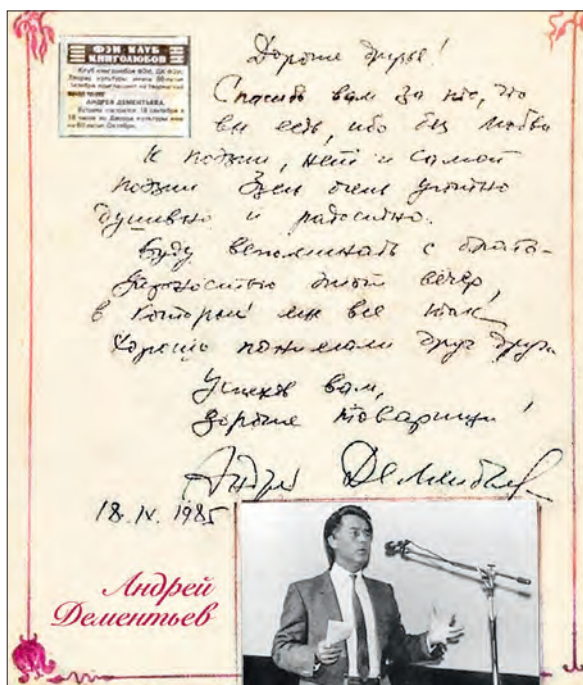 ФЭИ КЛУБ
КНИГОЛЮБОВ
Клуб книголюбов ФЭИ, ДК ФЭИ,
культуры имени
Октября приглашают на творческий
АНДРЕЯ ДЕМЕНТЬЕВА.
Встреча состоится 18 сентября в
18 часов во Дворце культуры
60-летия Октября.
Дорогие друзья!
Спасибо вам за то, что
вы есть, ибо без любви
к поэзии, нет и самой
поэзии Здесь очень уютно
душевно и радостно.
Буду вспоминать с благо-
дарностью этот вечер,
в который мы все так
хорошо понимали друг друга.
Успехов вам,
дорогие товарищи!
Андрей Дементьев
18.IV. 1985
Андрей
Дементьев